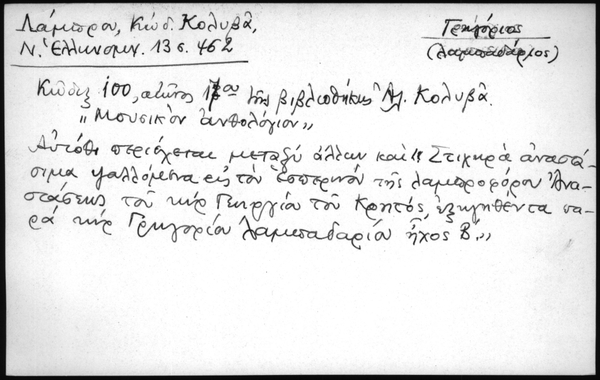 Λάμπρου, Κώδ. Κολυβᾶ,
Ν. Ἑλληνομν. 13 σ. 462
Γρηγόριος
(λαμπαδάριος)
Κῶδιξ 100, αἰῶνος 19ου τῆς βιβλιοθήκης Ἀλ. Κολυβᾶ.
"Μουσικὸν ἀνθολόγιον"
Αὐτόθι περιέχεται μεταξὺ ἄλλων καὶ "Στιχηρὰ ἀναστά-
σιμα ψαλλόμενα εἰς τὸν ἑσπερινὸν τῆς λαμπροφόρου Ἀνα-
στάσεως τοῦ κὺρ Γεωργίου τοῦ Κρητός, ἐξηγηθέντα πα-
ρὰ κὺρ Γρηγορίου λαμπαδαρίου ἦχος Β΄."